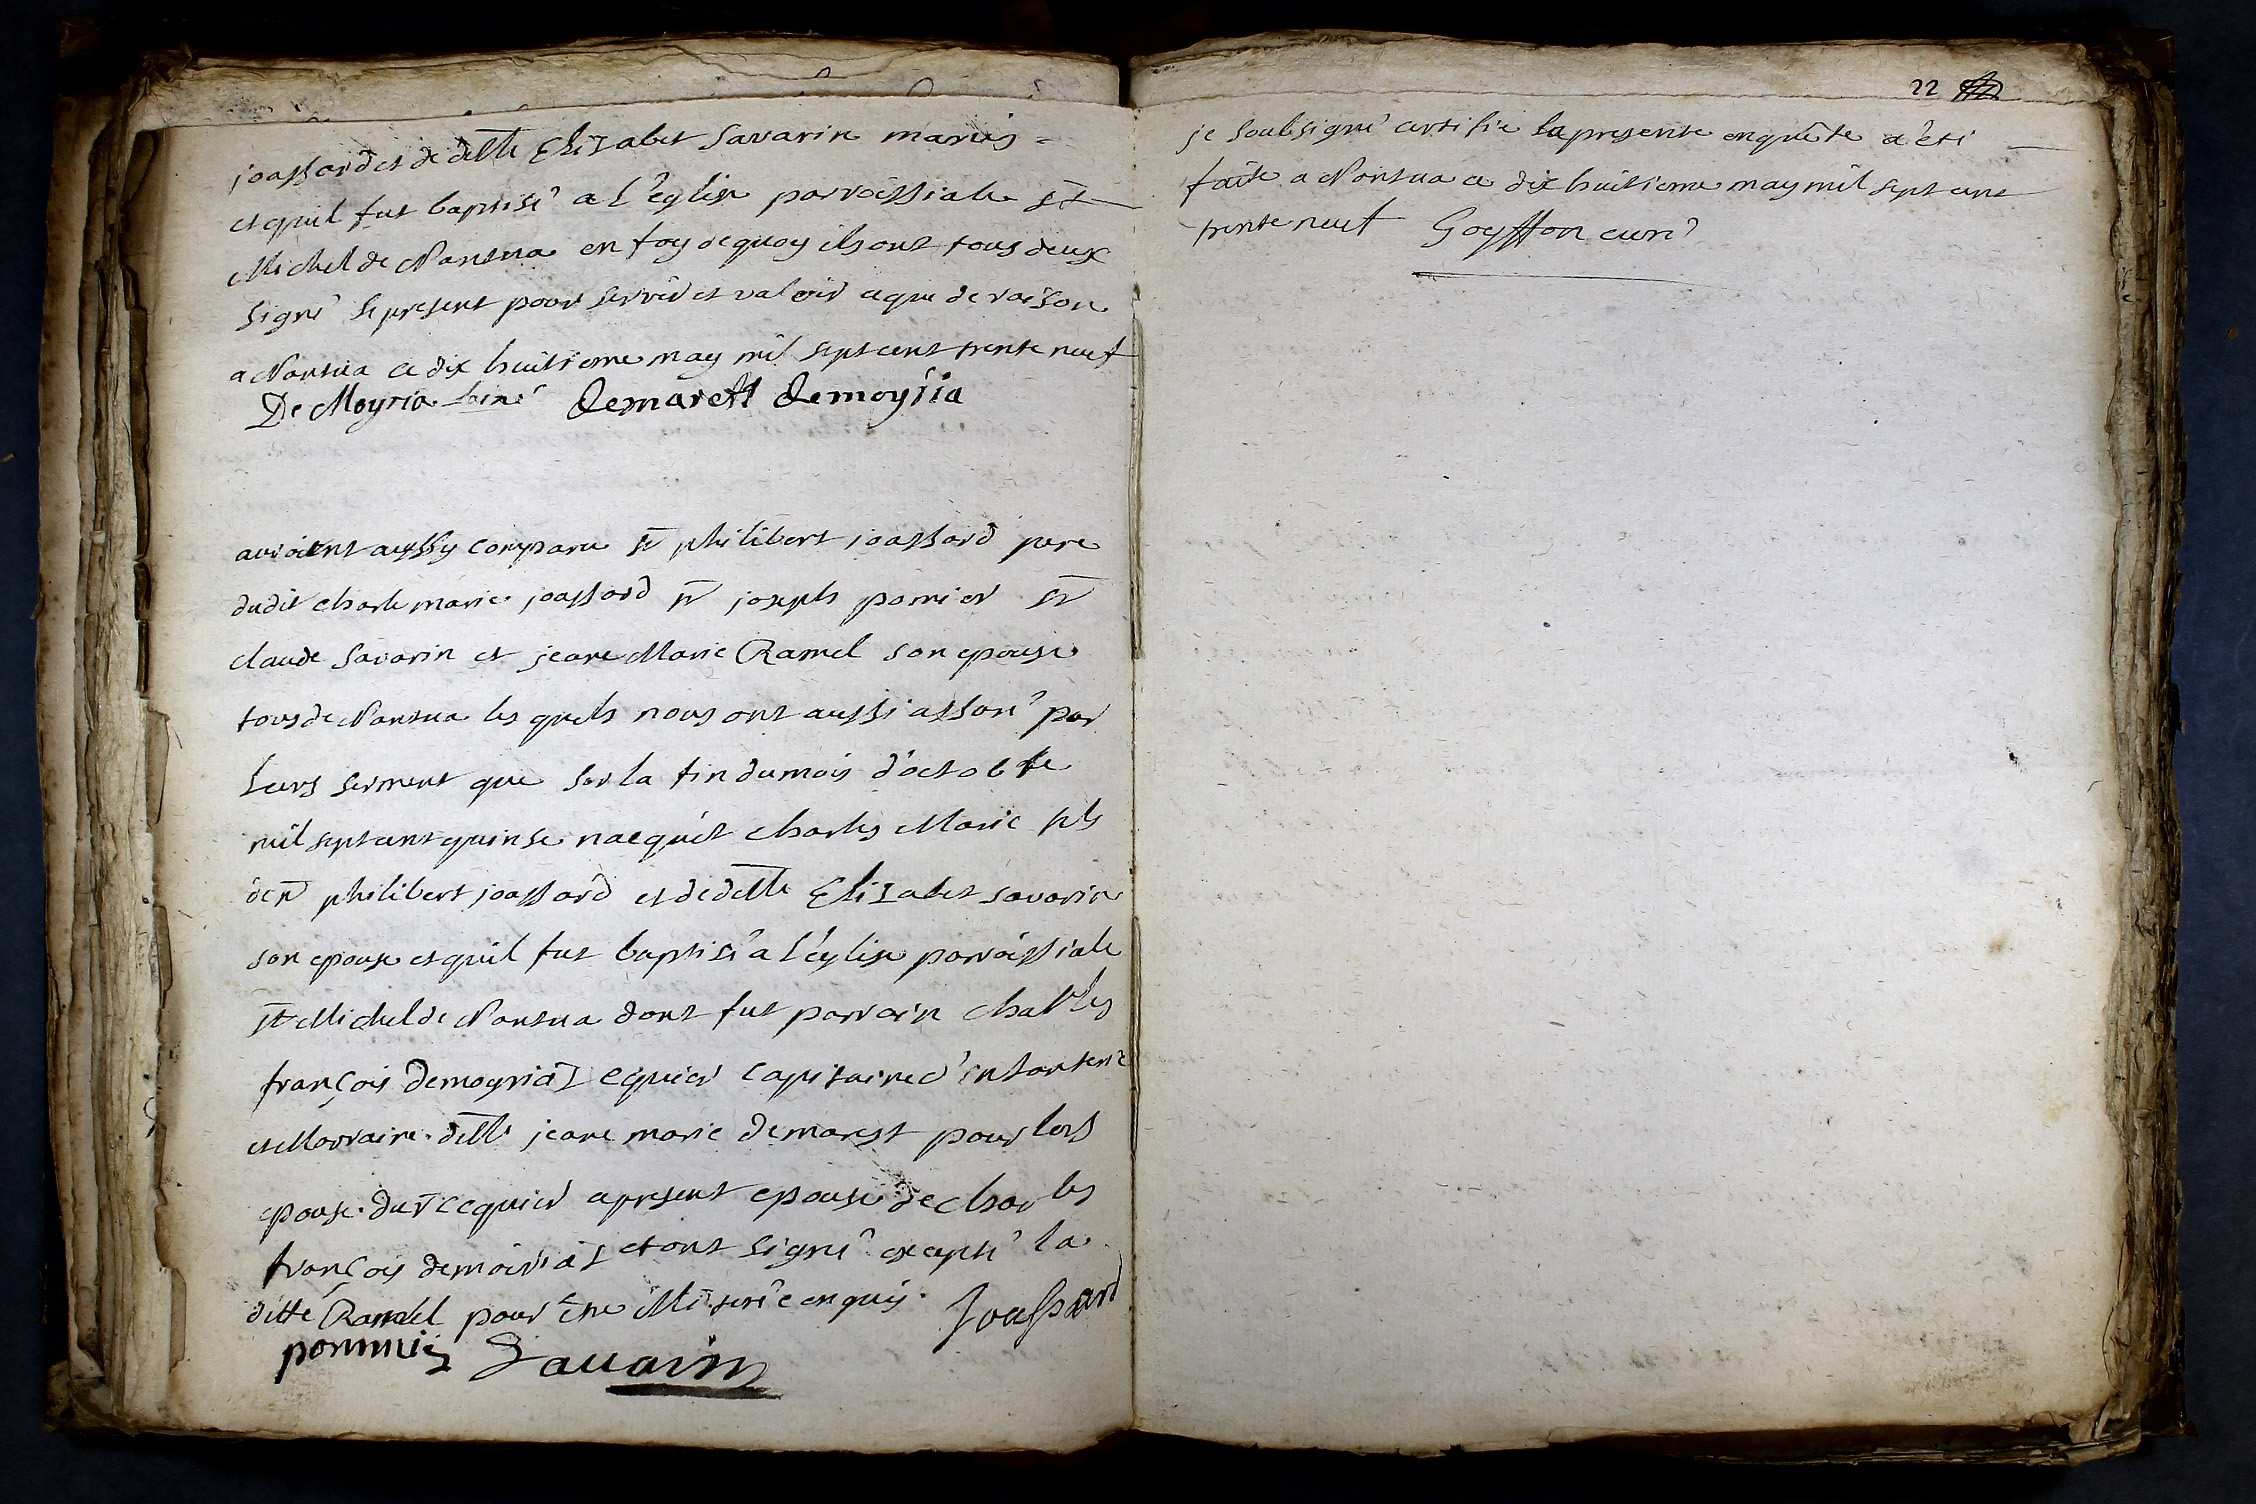 joassard et de delle Elizabet Savarin mariés =
et quil fut baptisé a l'église parroissiale st
Michel de Nantua en foy dequoy ils ont tous deux
signé le present pour servir et valoir ce que de raison
a Nantua ce dix huitieme may mil sept cent trente neuf
De Moyria lainé demarest demoyria
auroient aussy comparu sr philibert joassard pere
dudit charle marie joassard sr joseph pomier sr
claude Savarin et jeane Marie Ramel son epouse
tous de Nantua les quels nous ont aussi assuré par
leurs serment que sur la fin du mois d'octobre
mil sept cent quinse nacquit charles Marie fils
de sr philibert joassard et de delle Elizabet savarin
son epouse et quil fut baptisé a l'église parroissiale
st Michel de Nantua dont fut parrain charles
françois demoyriaz ecquier capitaine d'infanterie
et Marraine delle jeane marie demarest pour lors
epouse du sr ecquier apresent epouse de charles
françois demoiriaz et ont signé excepté la
ditte Ramel pour enquis. Joassard
pommier Savarin
22
je soubsigné certifie la presente enquête a'eté
faite a Nantua ce dix huitieme may mil sept cent
trente neuf Goyffon curé